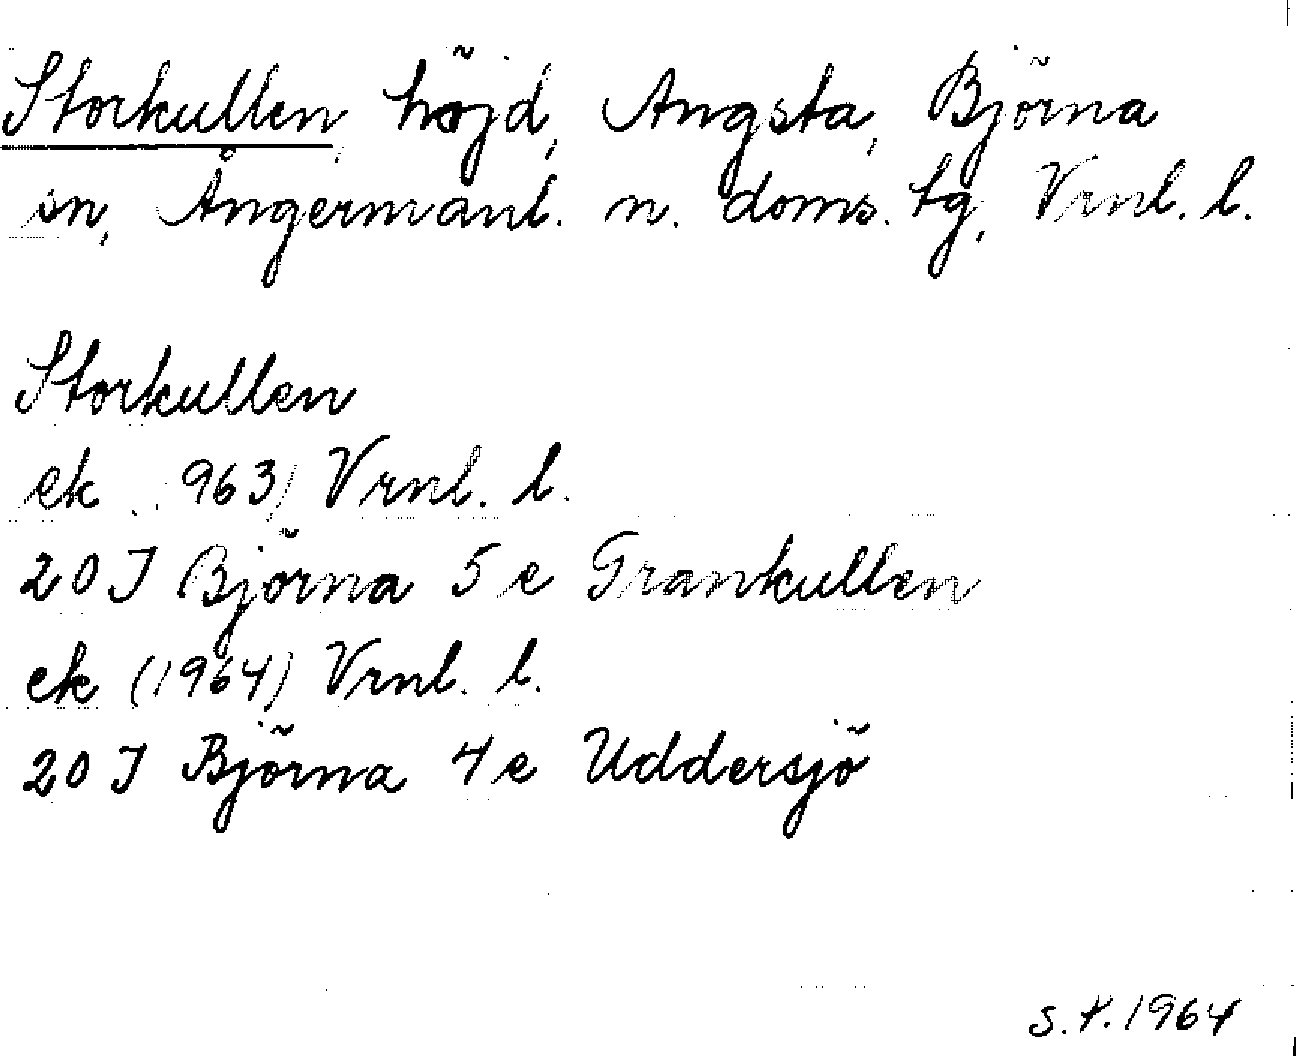 Storkullen, höjd, Angsta, Björna
sn, Ångermanl. n. doms. tg, Vrnl. l.
Storkullen
ek 963) Vrnl. l.
20 J Björna 5 e Grankullen
ek (1964) Vrnl. l.
20 J Björna 4 e Uddersjö
1964